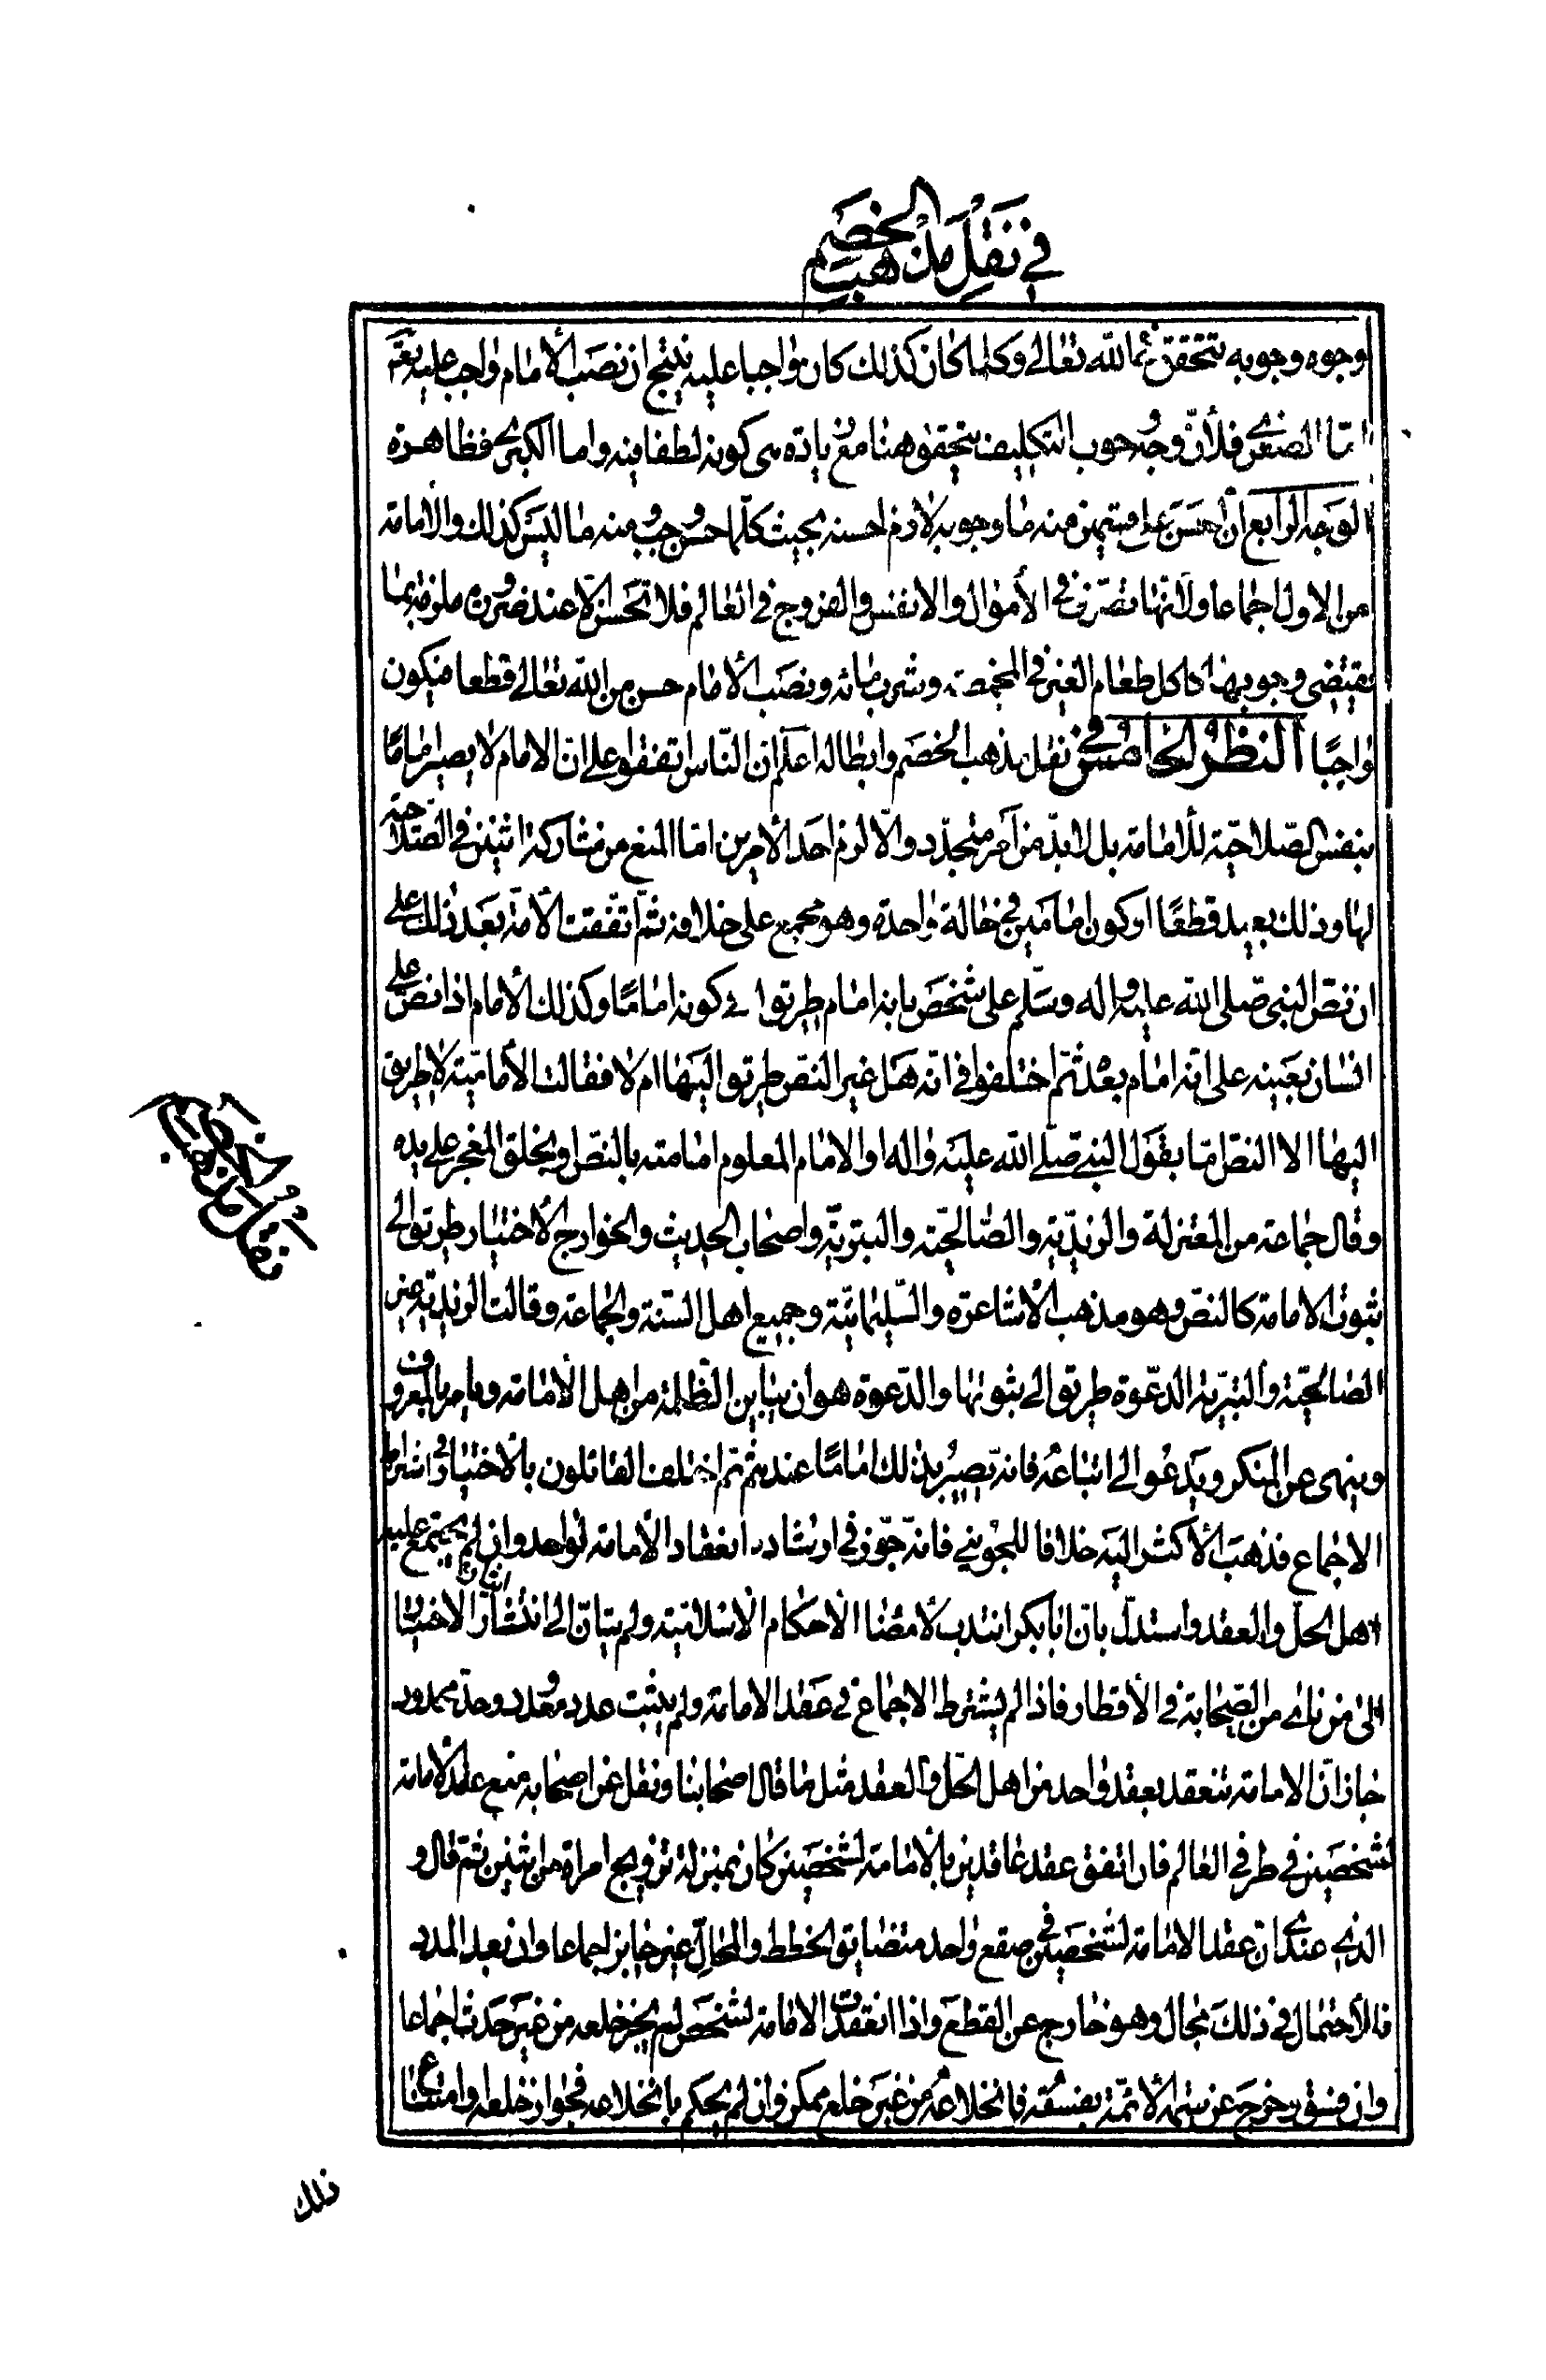 في نقل مذهب الخصم
وجوه وجوبه تتحقق من الله تعالى وكلما كان كذلك كان واجبا عليه ينتج ان نصب الأمام واجب عليه تعالى
اما الصغرى فلأن وجه وجوب التكليف يتحقق هنا مع زيادة هى كونه لطفا فيه واما الكبرى فظاهرة
الوجه الرابع ان احسن منه ما وجوبه لازم لحسنه بحيث كلما حسن وجب ومنه ما ليس كذلك والأمامة
من الاول اجماعا ولانها تصرف فى الأموال والانفس والفروج فى العالم فلا تحسن الا عند ضرورة ملزمة بها
تقتضى وجوبها كاكل طعام الغير فى المخمصة وشرب مائه ونصب الأمام حسن من الله تعالى قطعا فيكون
واجبًا النظر الخامس فى نقل مذهب الخصم وابطاله اعلم ان الناس اتفقوا على ان الامام لا يصير امامًا
بنفس الصلاحية للأمامة بل لابد من أمر متجدد والا لزم احد الأمرين اما المنع من مشاركة اثنين فى الصلاحية
لها وذلك بعيد قطعًا او كون امامين في حالة واحدة وهو مجمع على خلافه ثم اتفقت الأمة بعد ذلك على
ان نص النبى صلى الله عليه واله وسلم على شخص بانه امام طريق الى كونه امامًا وكذلك الأمام اذا نص على
انسان بعينه على انه امام بعده ثم اختلفوا فى انه هل غير النص طريق اليها ام لا فقالت الأمامية لا طريق
اليها الا النص اما بقول النبى صلى الله عليه واله او الامام المعلوم امامته بالنص او بخلق المعجز على يده
وقال جماعة من المعتزلة والزيدية والصالحية والبترية واصحاب الحديث والخوارج الأختيار طريق الى
ثبوت الامامة كالنص وهو مذهب الأشاعرة والسليمانية وجميع اهل السنة والجماعة وقالت الزيدية غير
الصالحية والبترية الدعوة طريق الى ثبوتها والدعوة هو ان يباين الظلمة من اهل الأمامة ويامر بالمعروف
وينهى عن المنكر ويدعو الى اتباعه فانه يصير بذلك امامًا عندهم ثم اختلف القائلون بالأختيار فى اشتراط
الاجماع فذهب الأكثر اليه خلافا للجوينى فانه جوز في ارشاده انعقاد الأمامة لواحد وان لم يجتمع عليه
اهل الحل والعقد واستدل بان ابا بكر انتدب لأمضاء الأحكام الأسلامية ولم يتأن الى انتشار الاخبار
الى من نأى من الصحابة فى الأقطار فاذا لم يشترط الاجماع في عقد الامامة ولم يثبت عدد معدود وحد محدود
جاز ان الامامة تنعقد بعقد واحد من اهل الحل والعقد مثل ما قال اصحابنا ونقل عن اصحابه منع عقد الأمامة
لشخصين فى طرفى العالم فان اتفق عقد عاقدين بالأمامة لشخصين كان بمنزلة تزويج امراة من اثنين ثم قال و
الذى عندى ان عقد الامامة لشخصين فى صقع واحد متضايق الخطط والمحال غير جايز اجماعا وان بعد المدد
فالأحتمال فى ذلك مجال وهو خارج عن القطع واذا انعقدت الامامة لشخص لم يجز خلعه من غير حدث اجماعا
وان فسق وخرج عن سمة الأئمة بفسقه فانخلاعه من غير خلع ممكن وان لم يحكم بانخلاعه فجواز خلعه وامتناع
ذلك